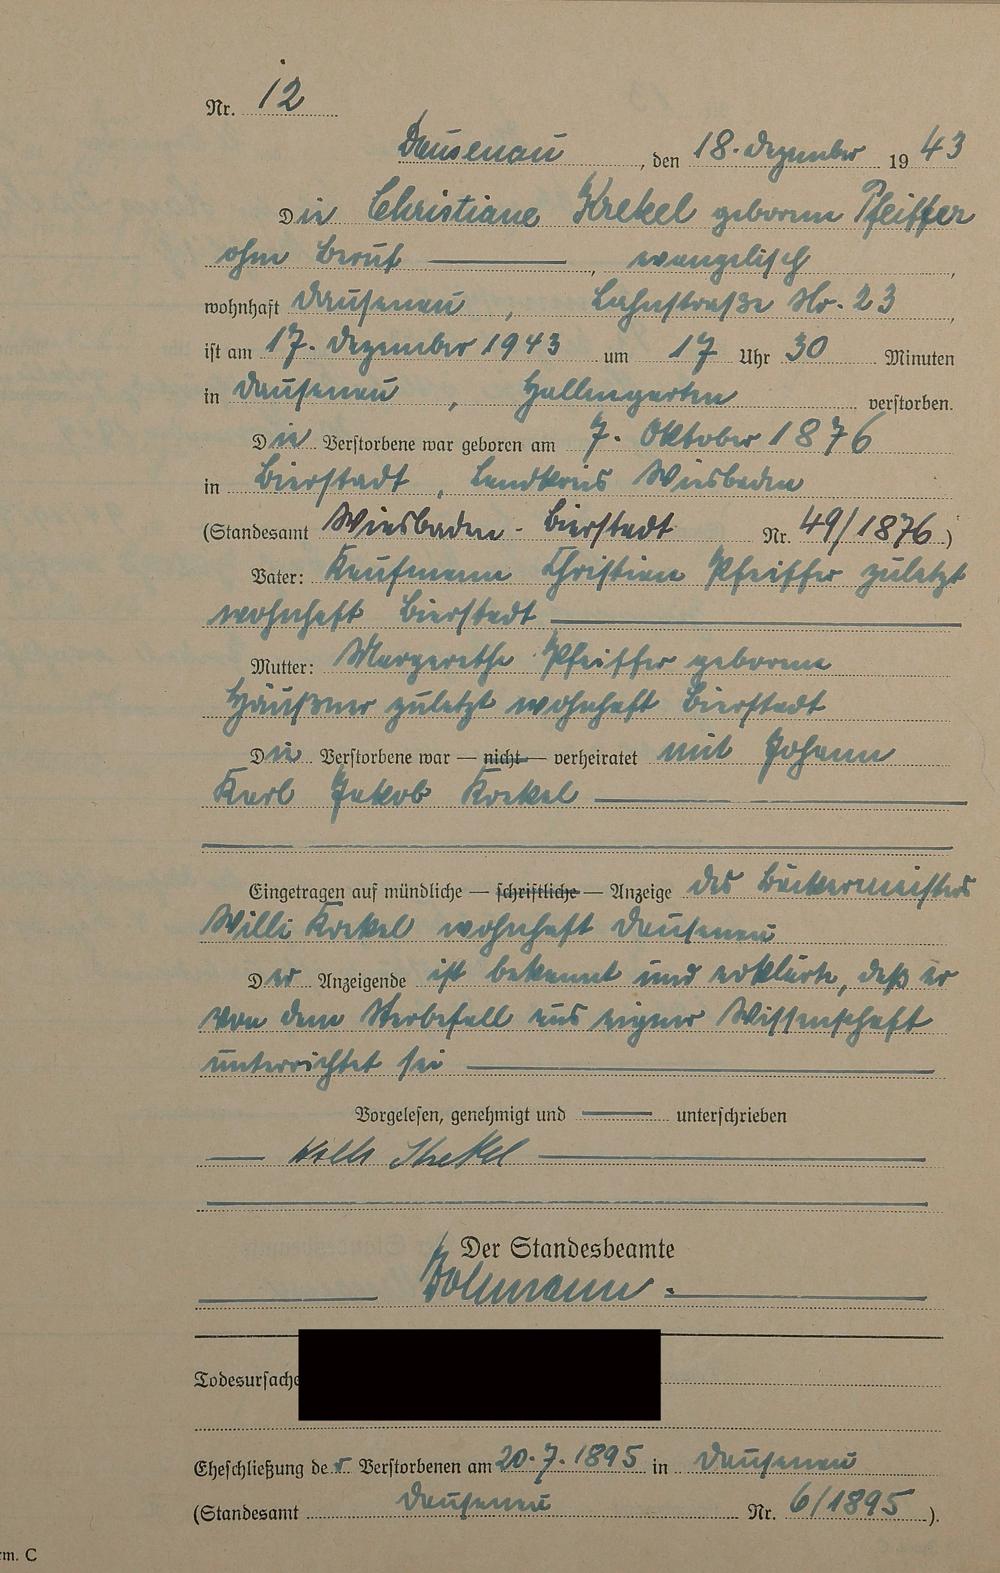 Nr. 12
Dausenau, den 18. Dezember 1943
Die Christiane Krekel geborene Pfeiffer
ohne Beruf, evangelisch,
wohnhaft Dausenau, Lahnstraße Nr. 23,
ist am 17. Dezember 1943 um 17 Uhr 30 Minuten
in Dausenau, Hallengarten verstorben.
Die Verstorbene war geboren am 7. Oktober 1876
in Bierstadt, Landkreis Wiesbaden
(Standesamt Wiesbaden-Bierstadt Nr. 49/1876.)
Vater: Kaufmann Christian Pfeiffer zuletzt
wohnhaft Bierstadt
Mutter: Margarethe Pfeiffer geborene
Häußner zuletzt wohnhaft Bierstadt
Die Verstorbene war — nicht — verheiratet mit Johann
Karl Jakob Krekel
Eingetragen auf mündliche — schriftliche — Anzeige des Bäckermeisters
Willi Krekel wohnhaft Dausenau
Der Anzeigende ist bekannt und erklärte, daß er
von dem Sterbefall aus eigner Wissenschaft
unterrichtet sei
Vorgelesen, genehmigt und unterschrieben
Willi Krekel
Der Standesbeamte
Todesursache
Eheschließung der Verstorbenen am 20.7.1895 in Dausenau
(Standesamt Dausenau Nr. 6/1895).
rm. C